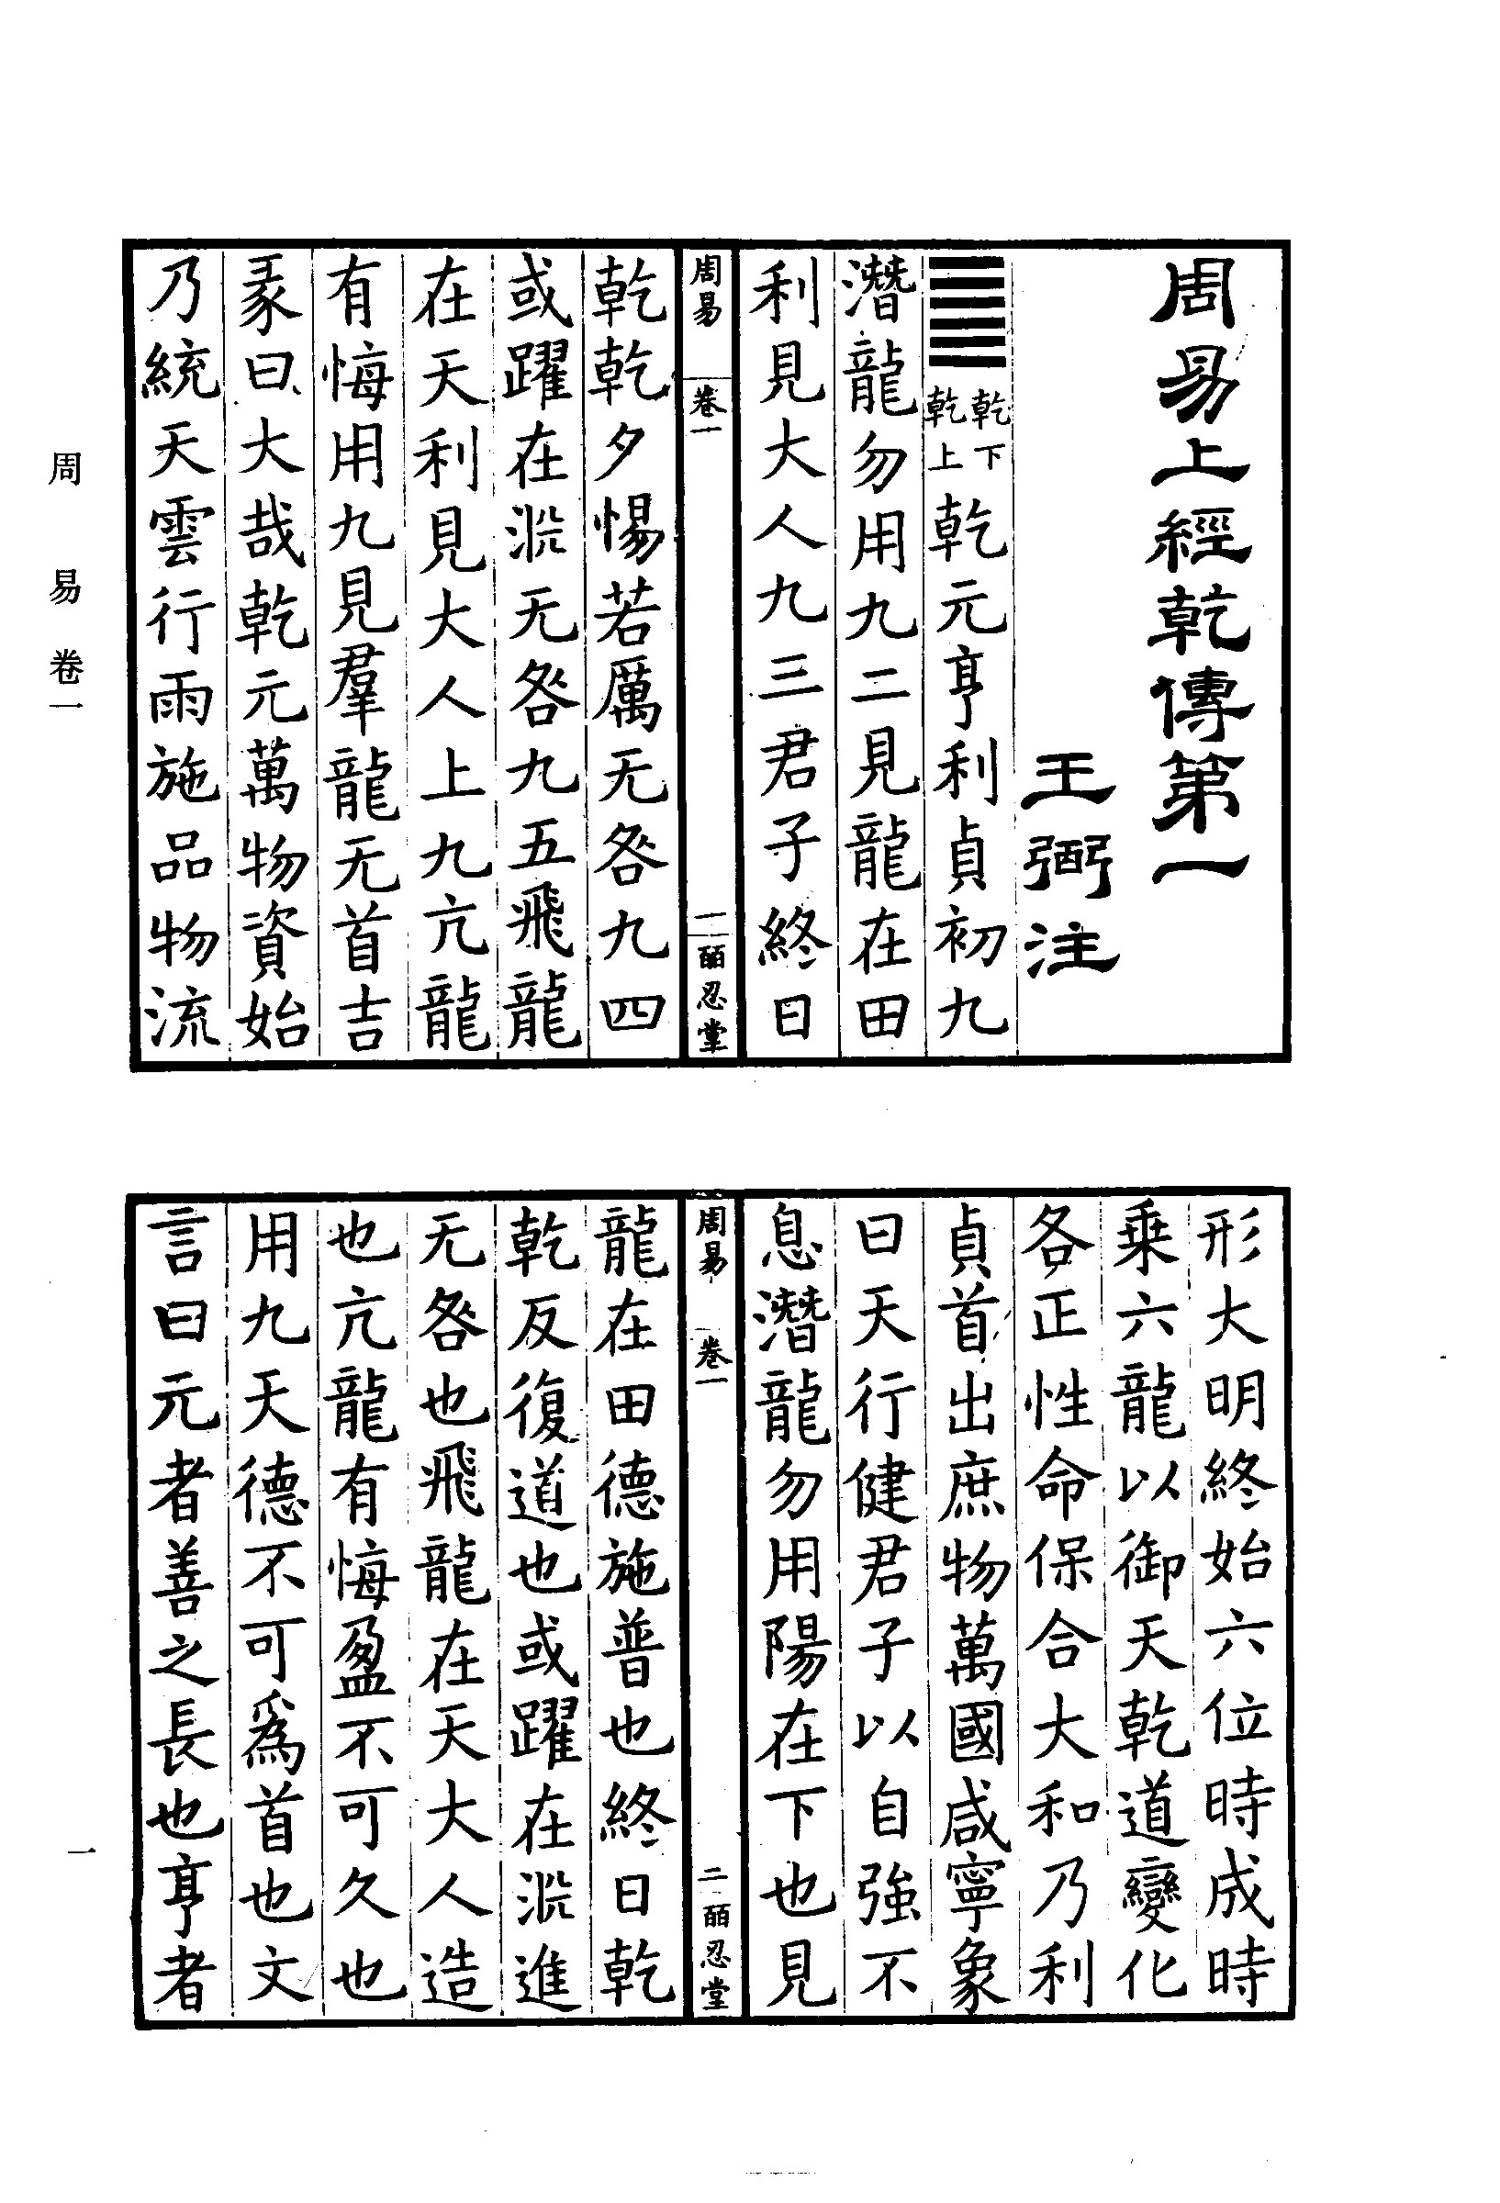 周易上經乾傳第一
王弼注
䷀乾下乾上乾元亨利貞初九
潛龍勿用九二見龍在田
利見大人九三君子終日
周易 卷一 一 皕忍堂
乾乾夕惕若厲无咎九四
或躍在淵无咎九五飛龍
在天利見大人上九亢龍
有悔用九見羣龍无首吉
彖曰大哉乾元萬物資始
乃統天雲行雨施品物流
形大明終始六位時成時
乘六龍以御天乾道變化
各正性命保合大和乃利
貞首出庶物萬國咸寧象
曰天行健君子以自強不
息潛龍勿用陽在下也見
周易 卷一 二 皕忍堂
龍在田德施普也終日乾
乾反復道也或躍在淵進
无咎也飛龍在天大人造
也亢龍有悔盈不可久也
用九天德不可爲首也文
言曰元者善之長也亨者
周易卷一
一